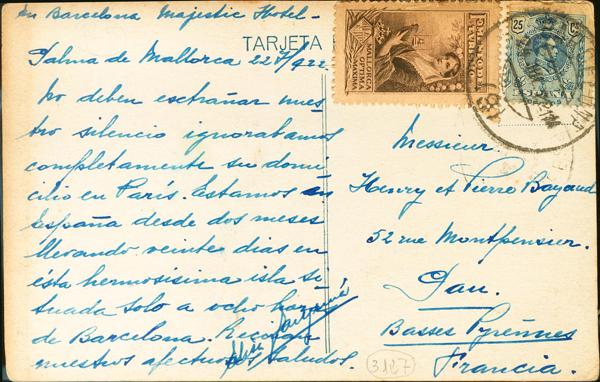 En Barcelona Majestic Hotel-
Palma de Mallorca 22 /922
TARJETA
No deben extrañar nues
tro silencio ignorabamos
completamente su domi
cilio en París. Estamos en
España desde dos meses
llevando veinte dias en
ésta hermosisima isla si
tuada solo a ocho horas
de Barcelona. Reciban
nuestros afectuosos saludos.
FOMENTO DE
TURISMO
MALLORCA
OPTIMA
MAXIMA
25
Cs
ESPAÑA
Messieurs
Henry et Pierre Bayaud
52 rue Montpensier.
Pau.
Basses Pyrénnes
Francia.
3127